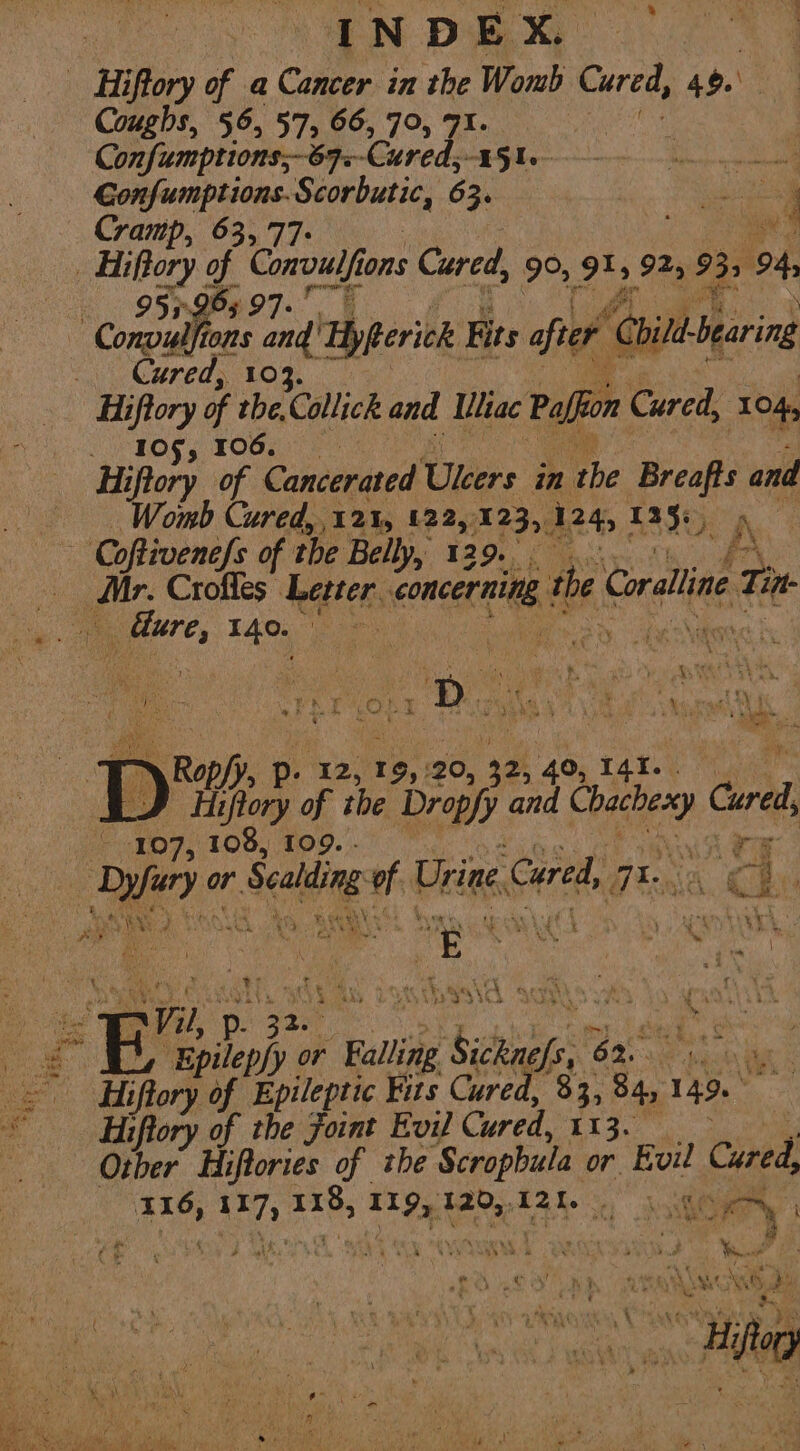 INDEX.
Hiſtory of a Cancer in the Womb Cured, 49.
Coughs, 56, 57, 66, 70, 71.
Conſumptions, 67. Cured, 151.
Conſumptions Scorbutic, 63.
Cramp, 63, 77.
Hiſtory of Convulſions Cured, 90, 91, 92, 93, 94,
95, 96, 97.
Convulſions and Hyſterick Fits after Child-bearing
Cured, 103.
Hiſtory of the Collick and Iliac Paſſion Cured, 104,
105, 106.
Hiſtory of Cancerated Ulcers in the Breaſts and
Womb Cured, 121, 122, 123, 124, 125.
Coſtiveneſs of the Belly, 129.
Mr. Croſſes Letter concerning the Coralline Tin-
cture, 140.
D
DRopſy, p. 12, 19, 20, 32, 40, 141.
Hiſtory of the Dropſy and Chachexy Cured,
107, 108, 109.
Dyſury or Scalding of Urine Cured, 71.
E
EVil, p. 32.
Epilepſy or Falling Sickneſs, 62.
Hiſtory of Epileptic Fits Cured, 83, 84, 149.
Hiſtory of the Joint Evil Cured, 113.
Other Hiſtories of the Scrophula or Evil Cured,
116, 117, 118, 119, 120, 121.
Hiſtory